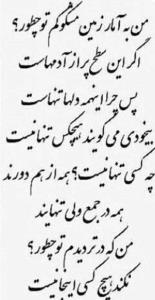 من به آمار زمین مشکوکم تو چطور؟
اگر این سطح پر از آدمهاست
پس چرا اینهمه دلها تنهاست
بیخودی می گویند هیچکس تنها نیست
چه کسی تنها نیست؟ همه از هم دورند
همه در جمع ولی تنهایند
من که در تردیدم تو چطور؟
نکند هیچ کسی اینجا نیست